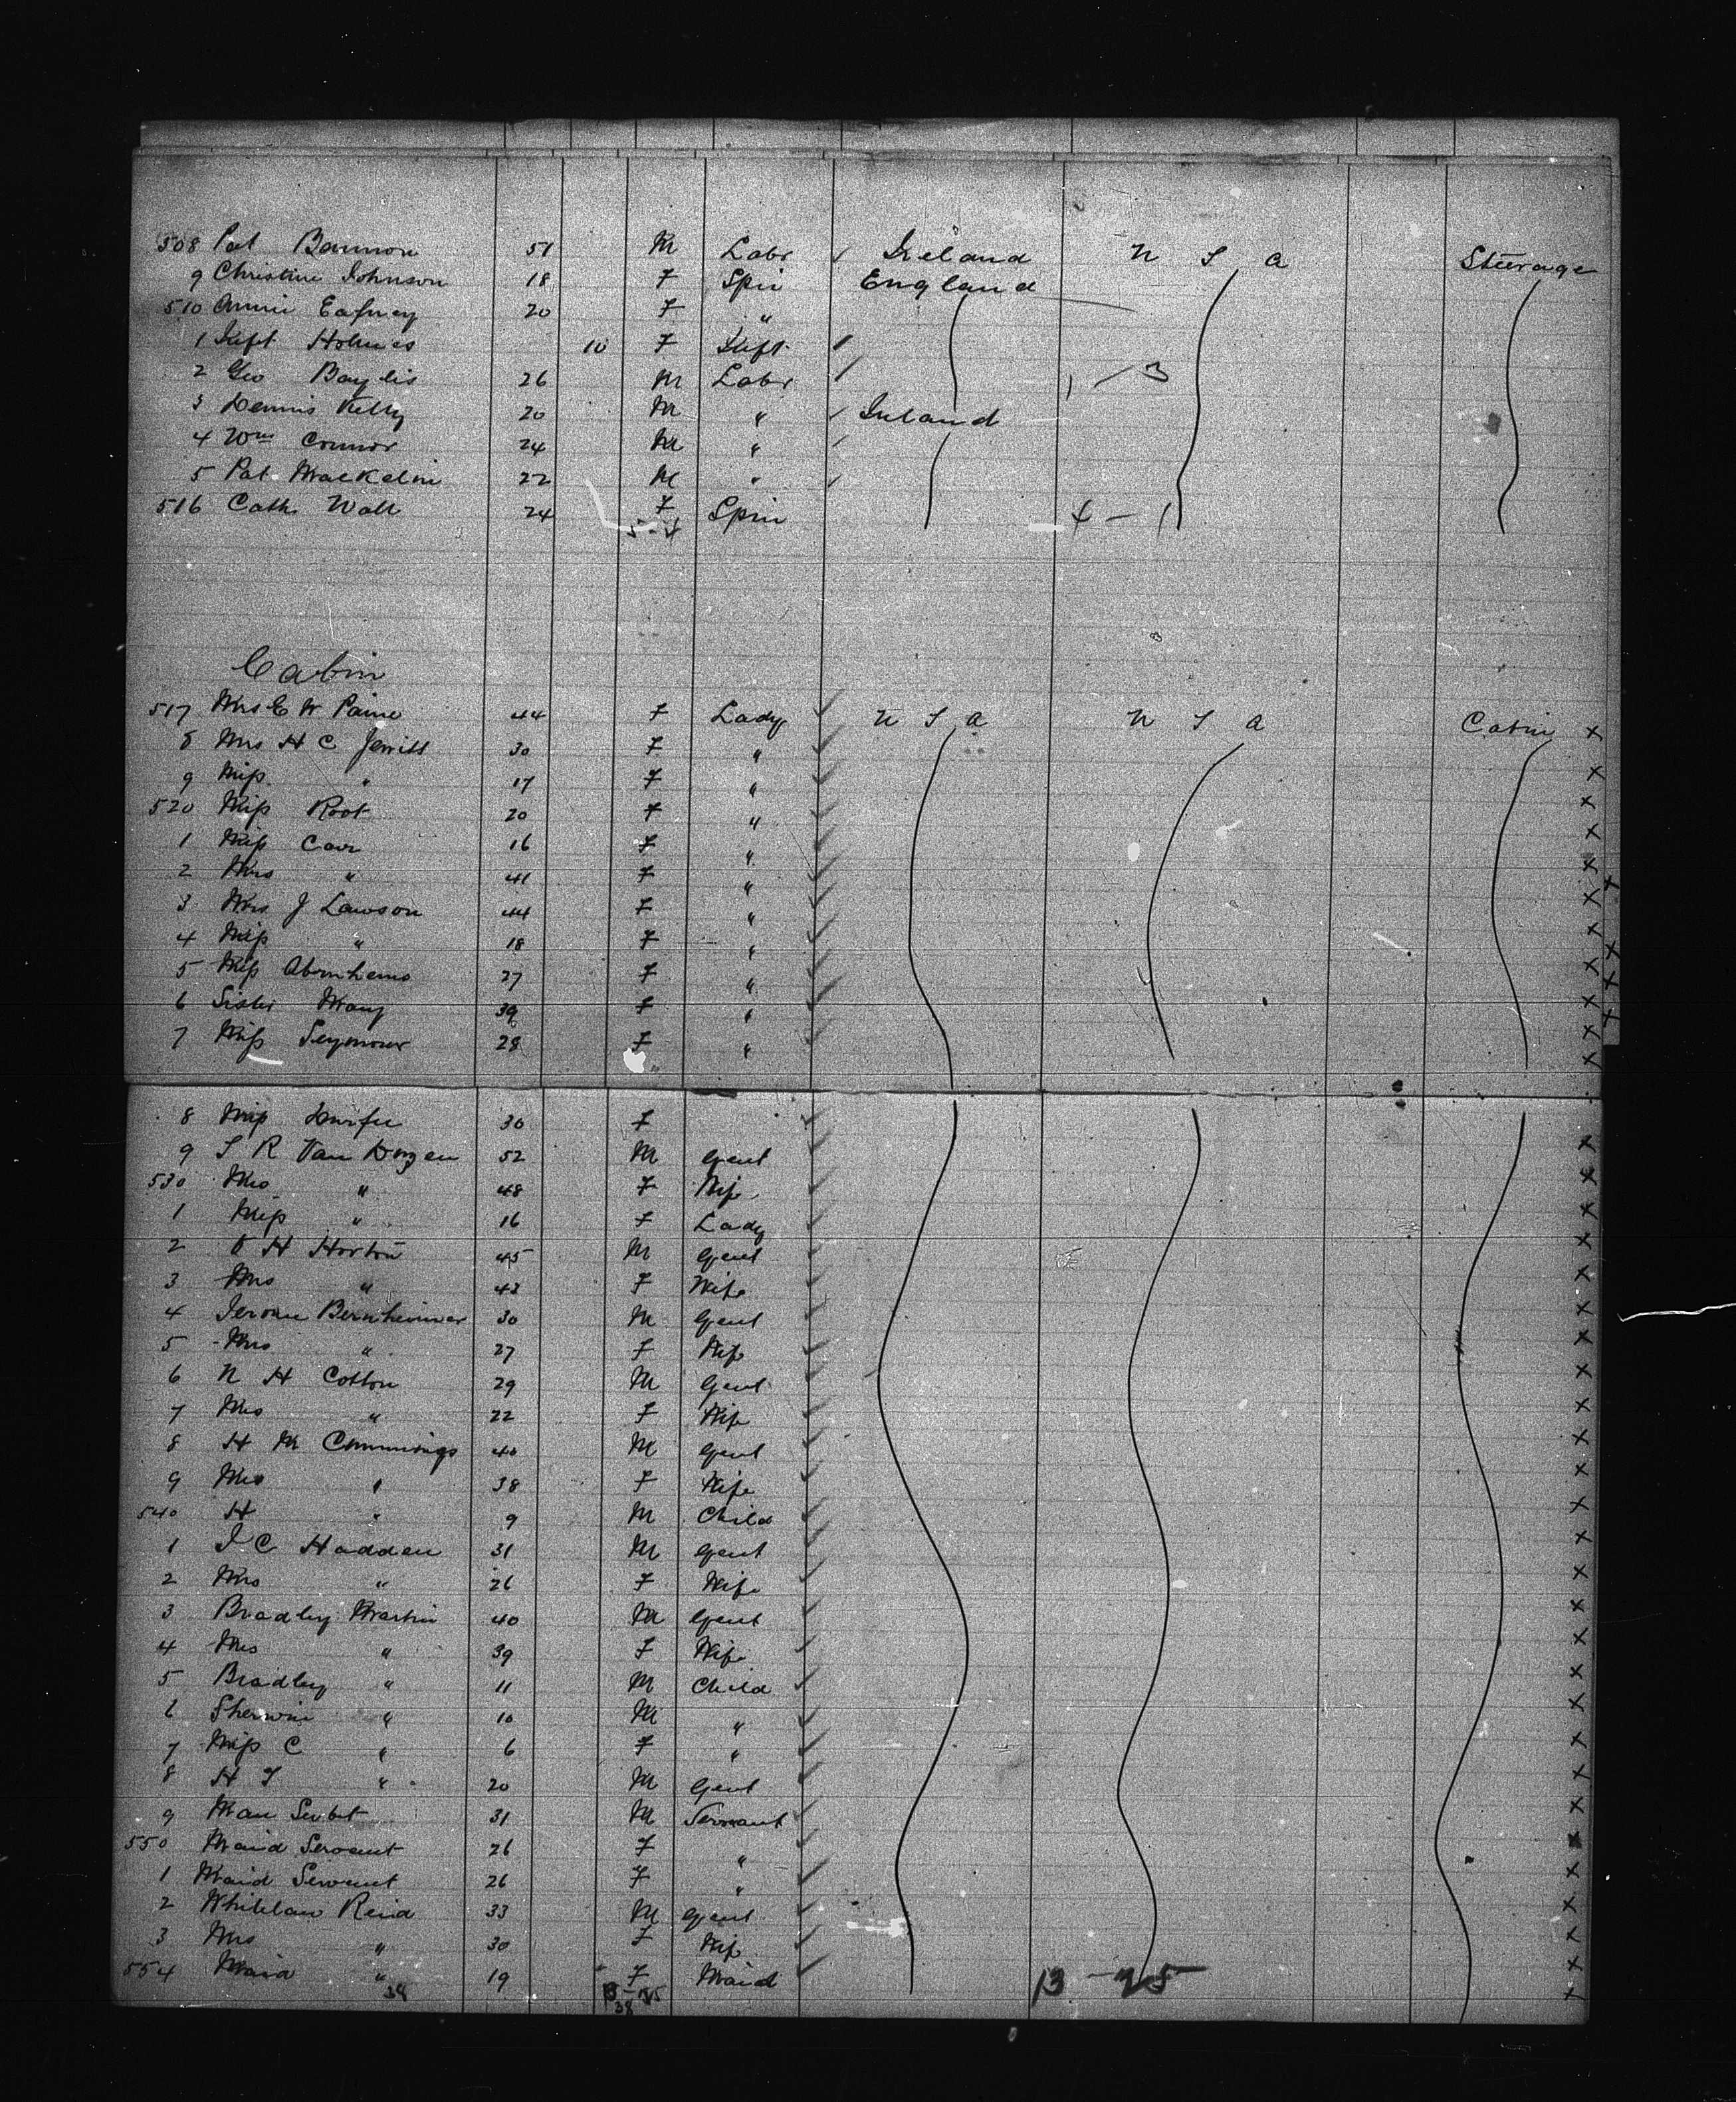 508 Pat Bannon 51 M Labr Ireland U S A Steerage
9 Christine Johnson 18 F Spin England
510 Annie 20 F "
1 Inft Holmes 10 F Inft
2 Geo Baylis 26 M Labr 1 - 3
3 Dennis Kelly 20 M " Ireland
4 Wm Connor 24 M "
5 Pat 22 M "
516 Cath Wall 24 F Spin 4 - 1
5 - 4
Cabin
517 Mrs E W Paine 44 F Lady U S A U S A Cabin
8 Mrs H C Jewitt 30 F "
9 Miss " 17 F "
520 Miss Root 20 F "
1 Miss Carr 16 F "
2 Mrs " 41 F "
3 Mrs J Lawson 44 F "
4 Miss " 18 F "
5 Miss 27 F "
6 Sister Mary 39 F "
7 Miss Seymour 28 F "
8 Miss 30 F
9 S R Van Duzen 52 M Gent
530 Mrs " 48 F Wife
1 Miss " 16 F Lady
2 O H Horton 45 M Gent
3 Mrs " 43 F Wife
4 Jerome Bernheimer 30 M Gent
5 Mrs " 27 F Wife
6 N H Cotton 29 M Gent
7 Mrs " 22 F Wife
8 H M Cummings 40 M Gent
9 Mrs " 38 F Wife
540 H " 9 M Child
1 J C Hadden 31 M Gent
2 Mrs " 26 F Wife
3 Bradley Martin 40 M Gent
4 Mrs " 39 F Wife
5 Bradley " 11 M Child
6 Sherwin " 10 M "
7 Miss C " 6 F "
8 H T " 20 M Gent
9 Man Servt 31 M Servant
550 Maid Servant 26 F "
1 Maid Servant 26 F "
2 Whitelaw Reid 33 M Gent
3 Mrs " 30 F Wife
554 Maid " 19 F Maid 13 - 25
38 13 - 25
38